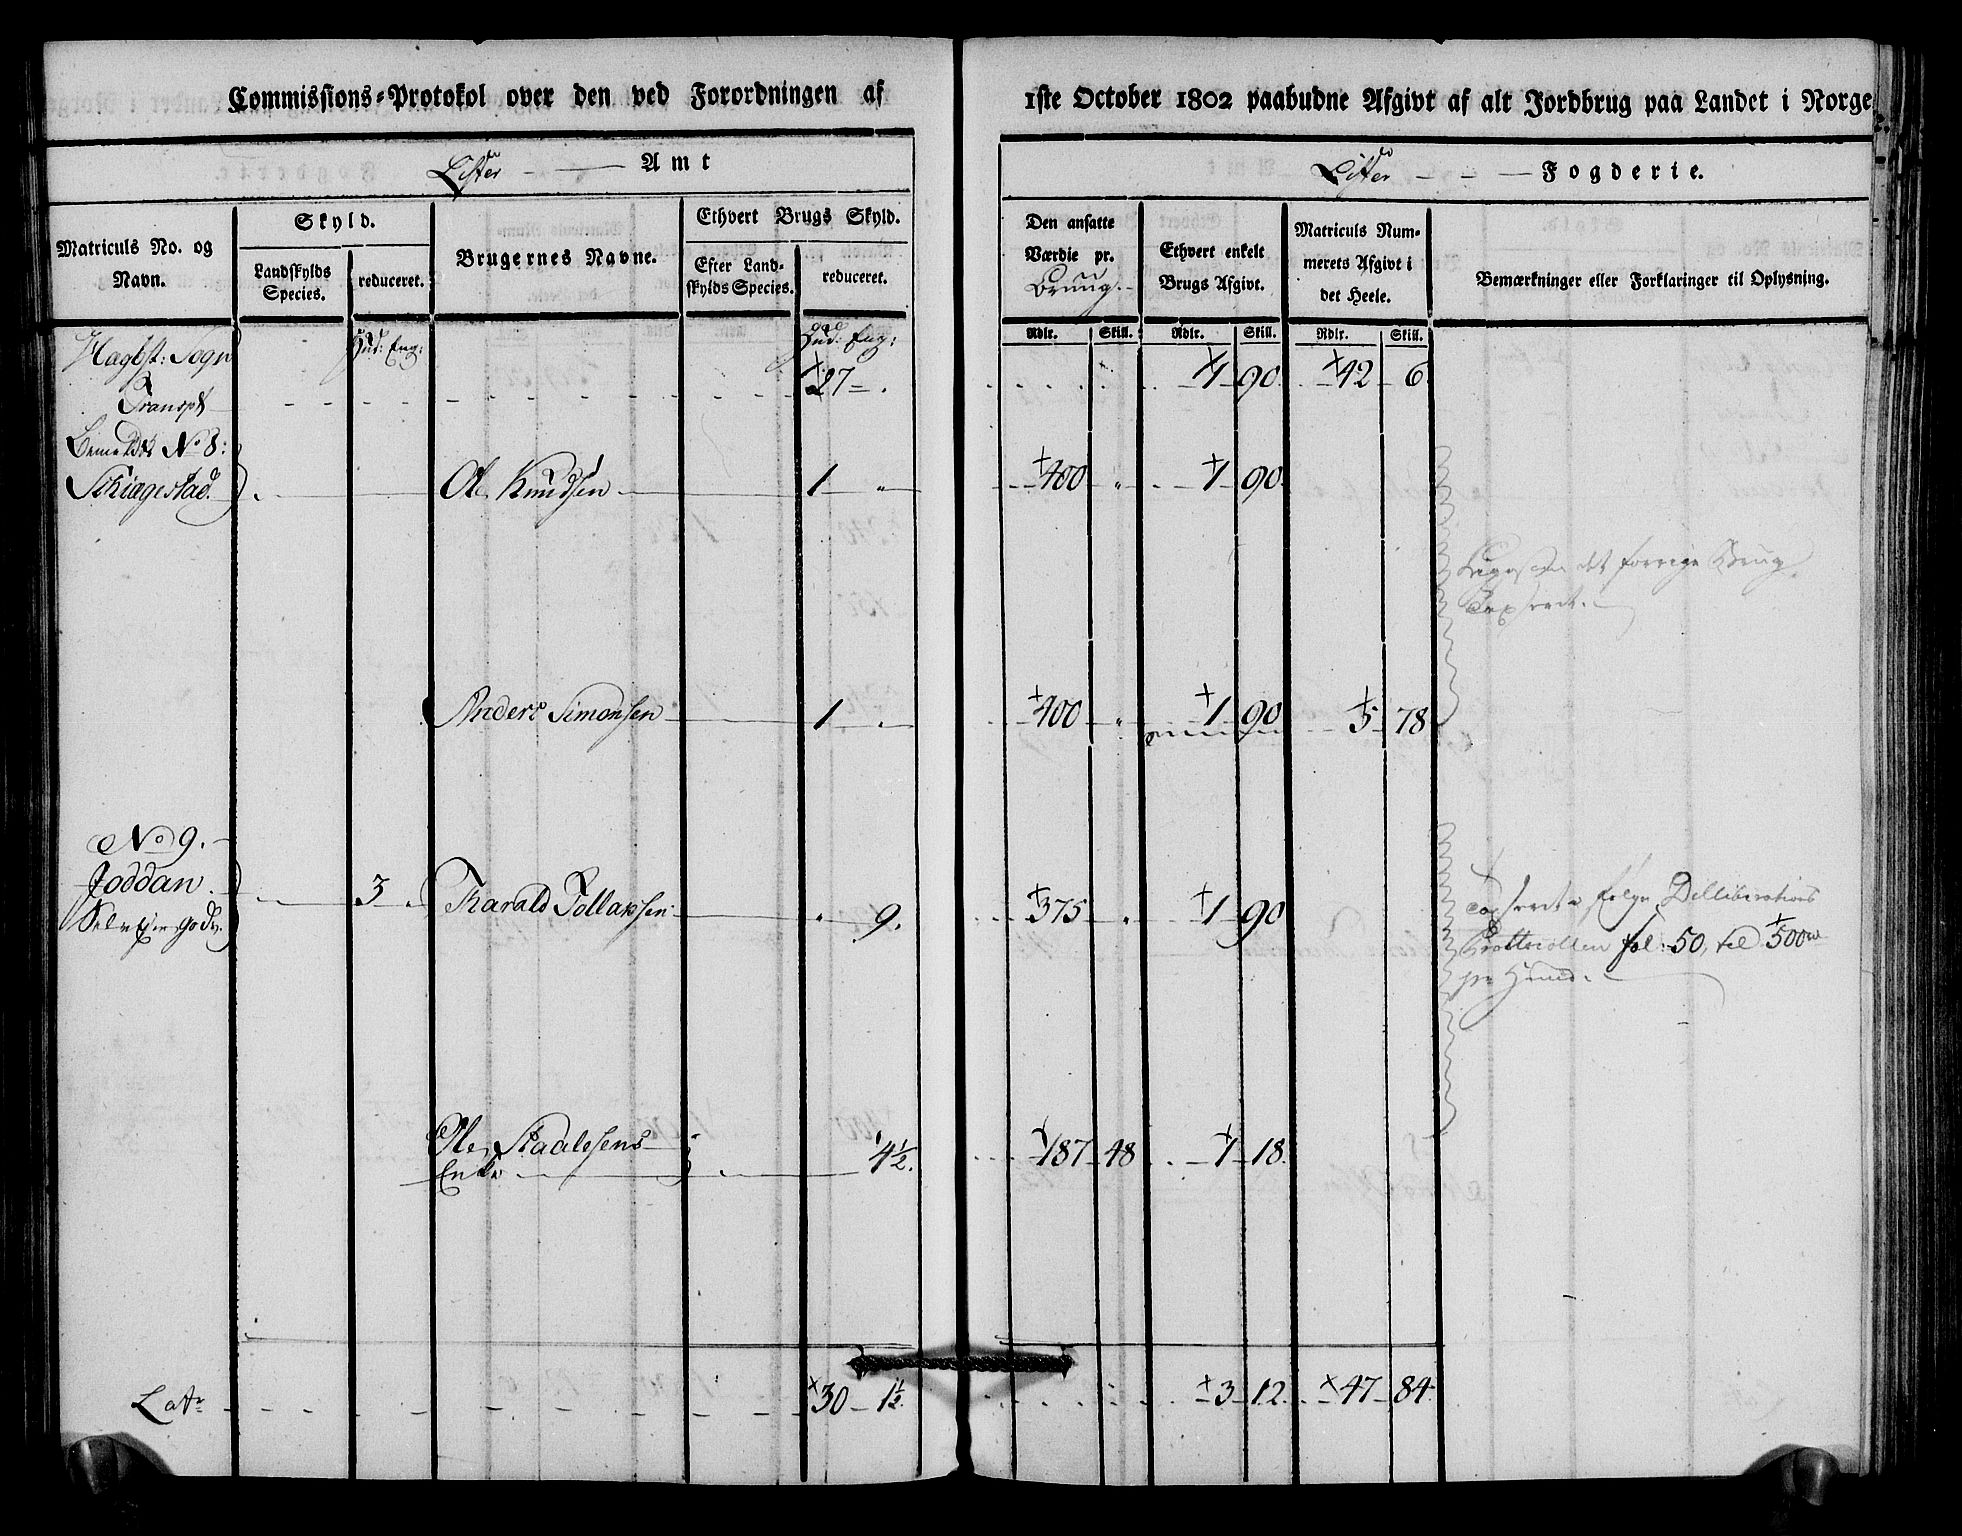 Commissions-Protokol over den ved Forordningen af 1ste October 1802 paabudne Afgivt af alt Jordbrug paa Landet i Norge.
Lister Amt
Lister Fogderie.
Matriculs No. og Navn.
Skyld.
Landskylds Species.
reduceret.
Brugernes Navne.
Ethvert Brugs Skyld.
Efter Landskylds Species.
reduceret.
Den ansatte Værdie pr. Bruug.
Ethvert enkelt Brugs Afgivt.
Matriculs Nummerets Afgivt i det Heele.
Bemærkninger eller Forklaringer til Oplysning.
Rdlr. Skill. Rdlr. Skill. Rdlr. Skill.
Hud: Eng: Hud: Eng:
Sogn
Transpt 27 1 90 42 6
No 8:
Ole Knudsen 1 " 400 " 1 90
det forrige Brug
Anders Simonsen 1 400 " 1 90 5 78
No 9.
Joddan. 3 Tharald Tollaksen " 9. 375 " 1 90
Delliberations
Prottocollen fol: 50, til 500
pr Huud.
Ole Staalesens 4½. 187 48 1 18
Enke
Lat 30 1½. 3 12 47 84